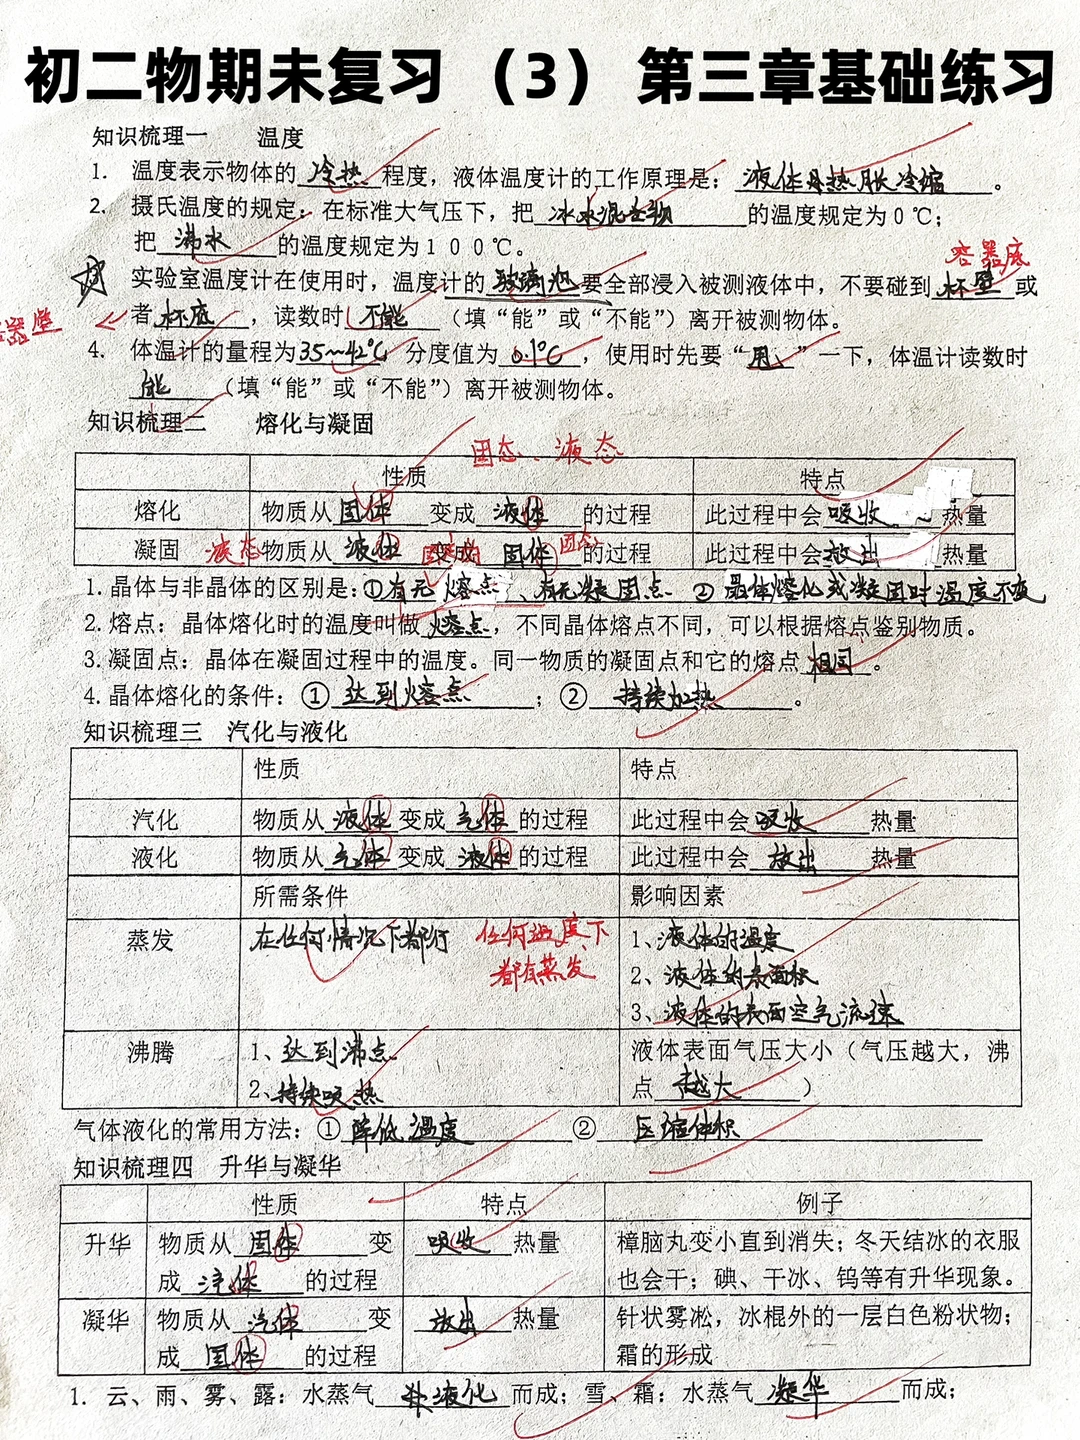 初二物期末复习（3）第三章基础练习
知识梳理一 温度
1. 温度表示物体的冷热程度，液体温度计的工作原理是：液体热胀冷缩。
2. 摄氏温度的规定：在标准大气压下，把冰水混合物的温度规定为0℃；
把沸水的温度规定为100℃。
容器底
实验室温度计在使用时，温度计的玻璃泡要全部浸入被测液体中，不要碰到杯壁或
器壁
者杯底，读数时不能（填“能”或“不能”）离开被测物体。
4. 体温计的量程为35~42℃ 分度值为0.1℃，使用时先要“甩”一下，体温计读数时
能（填“能”或“不能”）离开被测物体。
知识梳理二 熔化与凝固
固态、液态
性质 特点
熔化 物质从固体变成液体的过程 此过程中会吸收热量
凝固 液态 物质从液体变成固体的过程 固态 此过程中会放出热量
1.晶体与非晶体的区别是：①有无熔点、有无凝固点 ②晶体熔化或凝固时温度不变
2.熔点：晶体熔化时的温度叫做熔点，不同晶体熔点不同，可以根据熔点鉴别物质。
3.凝固点：晶体在凝固过程中的温度。同一物质的凝固点和它的熔点相同。
4.晶体熔化的条件：①达到熔点；②持续加热。
知识梳理三 汽化与液化
性质 特点
汽化 物质从液体变成气体的过程 此过程中会吸收热量
液化 物质从气体变成液体的过程 此过程中会放出热量
所需条件 影响因素
蒸发 在任何情况下都行 任何温度下 1、液体的温度
都有蒸发 2、液体的表面积
3、液体的表面空气流速
沸腾 1、达到沸点 液体表面气压大小（气压越大，沸
2、持续吸热 点越大）
气体液化的常用方法：①降低温度 ②压缩体积
知识梳理四 升华与凝华
性质 特点 例子
升华 物质从固体变 吸收热量 樟脑丸变小直到消失；冬天结冰的衣服
成汽体的过程 也会干；碘、干冰、钨等有升华现象。
凝华 物质从汽体变 放出热量 针状雾凇，冰棍外的一层白色粉状物；
成固体的过程 霜的形成
1. 云、雨、雾、露：水蒸气液化而成；雪、霜：水蒸气凝华而成；